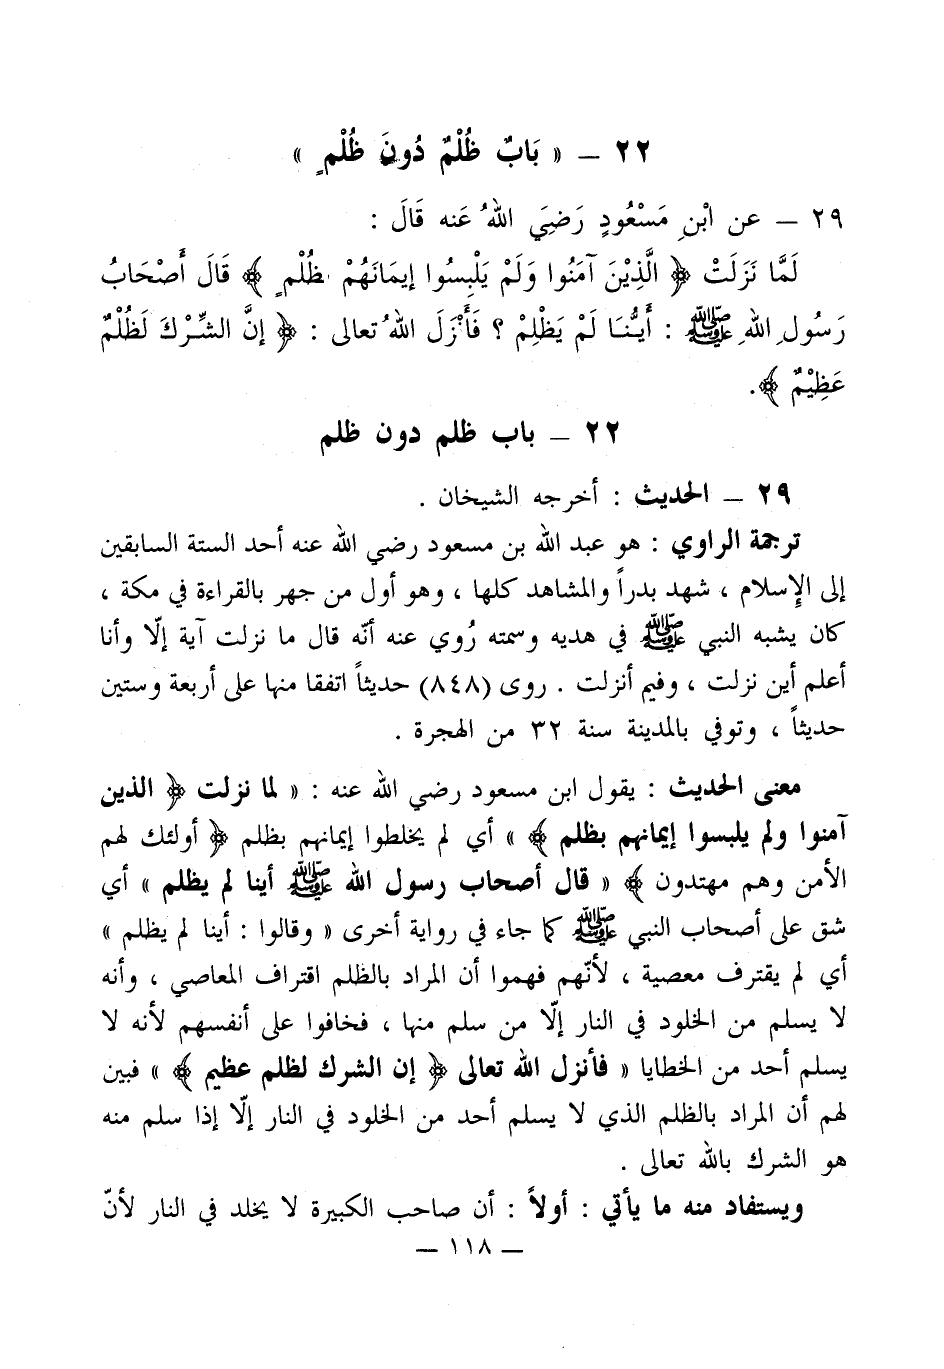 ٢٢ – « بَابٌ ظُلْمٌ دُونَ ظُلْمٍ »
٢٩ – عن ابْنِ مَسْعُودٍ رَضِيَ اللهُ عَنه قَالَ :
لَمَّا نَزَلَتْ ﴿ الَّذِيْنَ آمَنُوا وَلَمْ يَلْبِسُوا إيمَانَهُمْ بِظُلْمٍ ﴾ قَالَ أَصْحَابُ
رَسُولِ اللهِ ﷺ : أَيُّنَا لَمْ يَظْلِمْ ؟ فَأَنْزَلَ اللهُ تعالى : ﴿ إنَّ الشِّرْكَ لَظُلْمٌ
عَظِيْمٌ ﴾.
٢٢ – باب ظلم دون ظلم
٢٩ – الحديث : أخرجه الشيخان .
ترجمة الراوي : هو عبد الله بن مسعود رضي الله عنه أحد الستة السابقين
إلى الإسلام ، شهد بدراً والمشاهد كلها ، وهو أول من جهر بالقراءة في مكة ،
كان يشبه النبي ﷺ في هديه وسمته رُوي عنه أنّه قال ما نزلت آية إلّا وأنا
أعلم أين نزلت ، وفيم أنزلت . روى (٨٤٨) حديثاً اتفقا منها على أربعة وستين
حديثاً ، وتوفي بالمدينة سنة ٣٢ من الهجرة .
معنى الحديث : يقول ابن مسعود رضي الله عنه : « لما نزلت ﴿ الذين
آمنوا ولم يلبسوا إيمانهم بظلم ﴾ » أي لم يخلطوا إيمانهم بظلم ﴿ أولئك لهم
الأمن وهم مهتدون ﴾ « قال أصحاب رسول الله ﷺ أينا لم يظلم » أي
شق على أصحاب النبي ﷺ كما جاء في رواية أخرى « وقالوا : أينا لم يظلم »
أي لم يقترف معصية ، لأنّهم فهموا أن المراد بالظلم اقتراف المعاصي ، وأنه
لا يسلم من الخلود في النار إلّا من سلم منها ، فخافوا على أنفسهم لأنه لا
يسلم أحد من الخطايا « فأنزل الله تعالى ﴿ إن الشرك لظلم عظيم ﴾ » فبين
لهم أن المراد بالظلم الذي لا يسلم أحد من الخلود في النار إلّا إذا سلم منه
هو الشرك بالله تعالى .
ويستفاد منه ما يأتي : أولاً : أن صاحب الكبيرة لا يخلد في النار لأنّ
– ١١٨ –